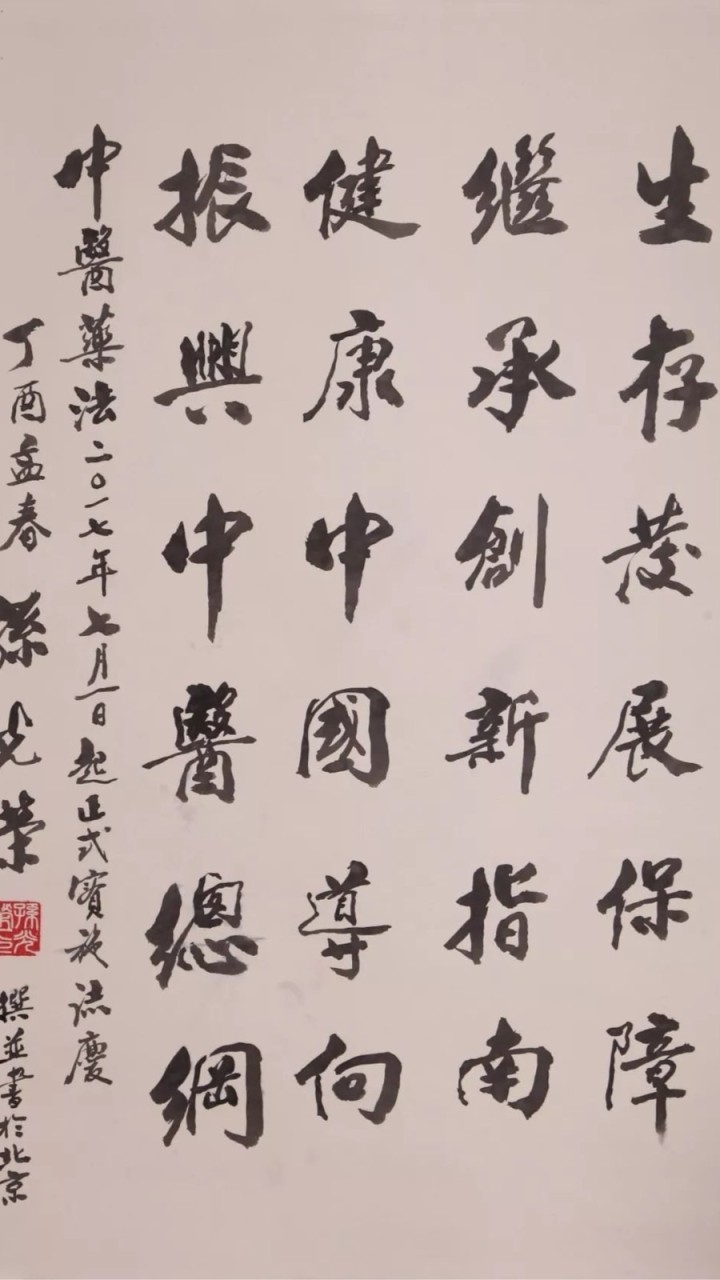 生存發展保障
繼承創新指南
健康中國導向
振興中醫總綱
中醫藥法二〇一七年七月一日起正式實施誌慶
丁酉孟春 孫光榮 撰並書於北京